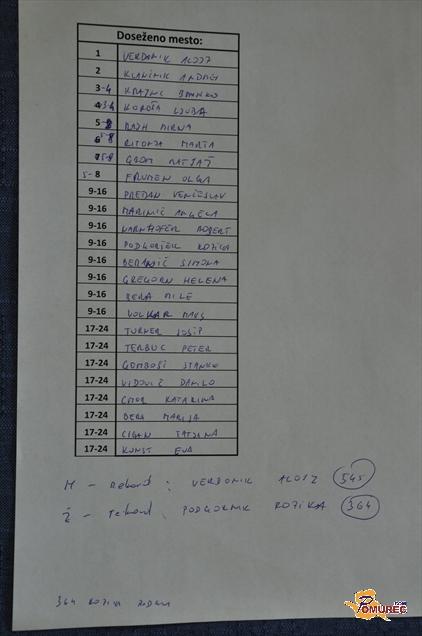 Doseženo mesto:
1 VERDONIK ALOJZ
2 KLANČNIK ANDREJ
3-4 KRAJNC BRANKO
3-4 KOROŠA LJUBA
5-8 RAJH MIRNA
5-8 RITONJA MARTA
5-8 GROM MATJAŽ
5-8 FRUMEN OLGA
9-16 PREDAN VENČESLAV
9-16 MARINIČ ANGELA
9-16 KARNHOFER ROBERT
9-16 PODGORNIK ROZIKA
9-16 BERANIČ SIMONA
9-16 GREGORN HELENA
9-16 BERA MILE
9-16 VOLKAR MAKS
17-24 TURNER JOSIP
17-24 TERBUC PETER
17-24 GOMBOŠI STANKO
17-24 VIDOVIČ DANILO
17-24 CMOR KATARINA
17-24 BERA MARIJA
17-24 CIGAN TATJANA
17-24 KUNST EVA
M - Rekord: VERDONIK ALOJZ 545
Ž - rekord: PODGORNIK ROZIKA 364
364 ROZIKA
POMUREC.COM